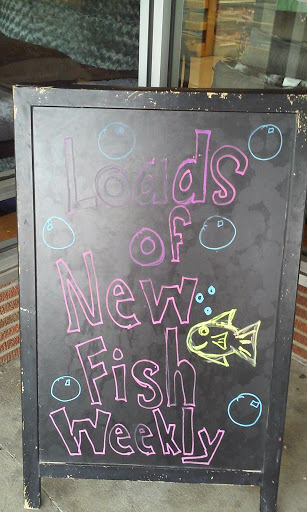 Loads
of
New
Fish
Weekly